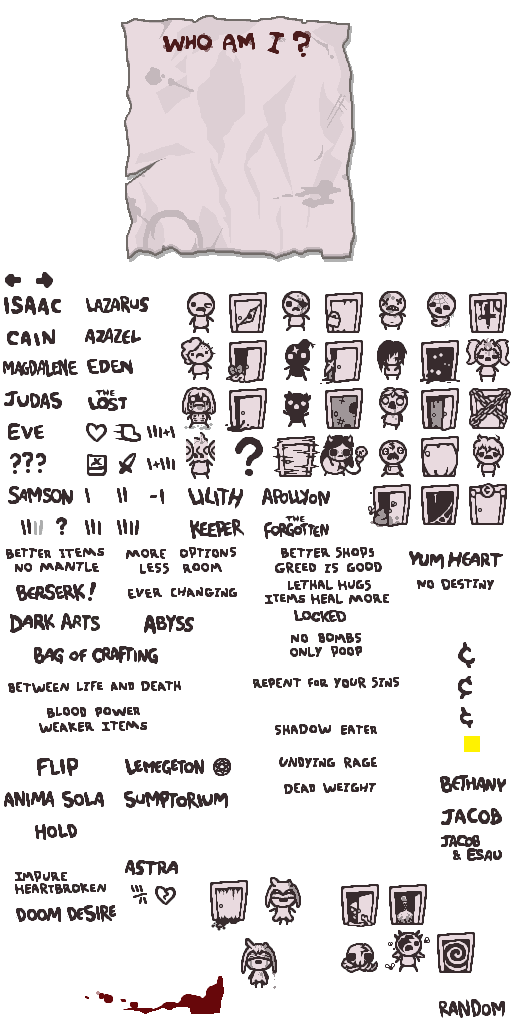 WHO AM I ?
ISAAC LAZARUS
CAIN AZAZEL
MAGDALENE EDEN
JUDAS THE LOST
EVE
???
?
SAMSON LILITH APOLLYON
? KEEPER THE FORGOTTEN
BETTER ITEMS
NO MANTLE
MORE OPTIONS
LESS ROOM
BETTER SHOPS
GREED IS GOOD
YUM HEART
BERSERK!
EVER CHANGING
LETHAL HUGS
ITEMS HEAL MORE
NO DESTINY
DARK ARTS ABYSS
LOCKED
BAG OF CRAFTING
NO BOMBS
ONLY POOP
¢
BETWEEN LIFE AND DEATH
REPENT FOR YOUR SINS
¢
BLOOD POWER
WEAKER ITEMS
¢
SHADOW EATER
FLIP LEMEGETON
UNDYING RAGE
ANIMA SOLA SUMPTORIUM
DEAD WEIGHT
BETHANY
HOLD
JACOB
JACOB
& ESAU
ASTRA
IMPURE
HEARTBROKEN
DOOM DESIRE
RANDOM